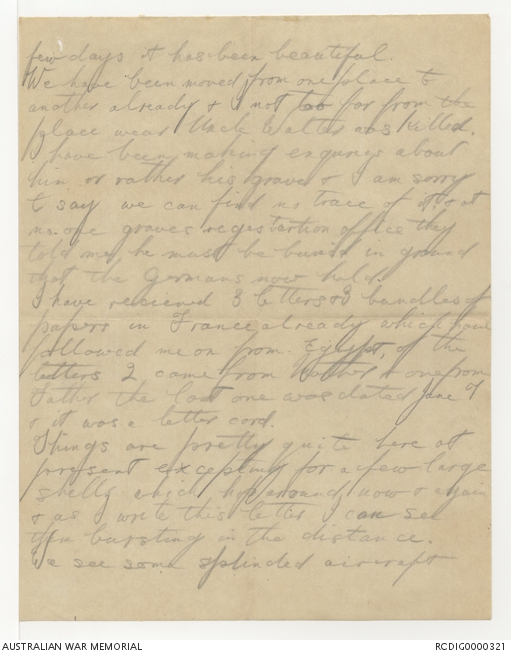 few days it has been beautiful.
We have been moved from one place to
another already & I not too far from the
place wear Uncle Walter was killed.
I have been making enquirys about
him or rather his grave & I am sorry
to say we can find no trace of it & at
one graves regestartion office they
told me he must be buried in ground
that the Germans now hold.
I have received 3 letters & 3 bundles of
papers in France already which have
followed me on from Egypt, of the
letters 2 came from Mother & one from
Father the last one was dated June 9
& it was a letter card.
Things are pretty quite here at
present excepting for a few large
shells which hop around now & again
& as I write this letter I can see
them bursting in the distance.
We see some splinded aircraft
AUSTRALIAN WAR MEMORIAL
RCDIG0000321